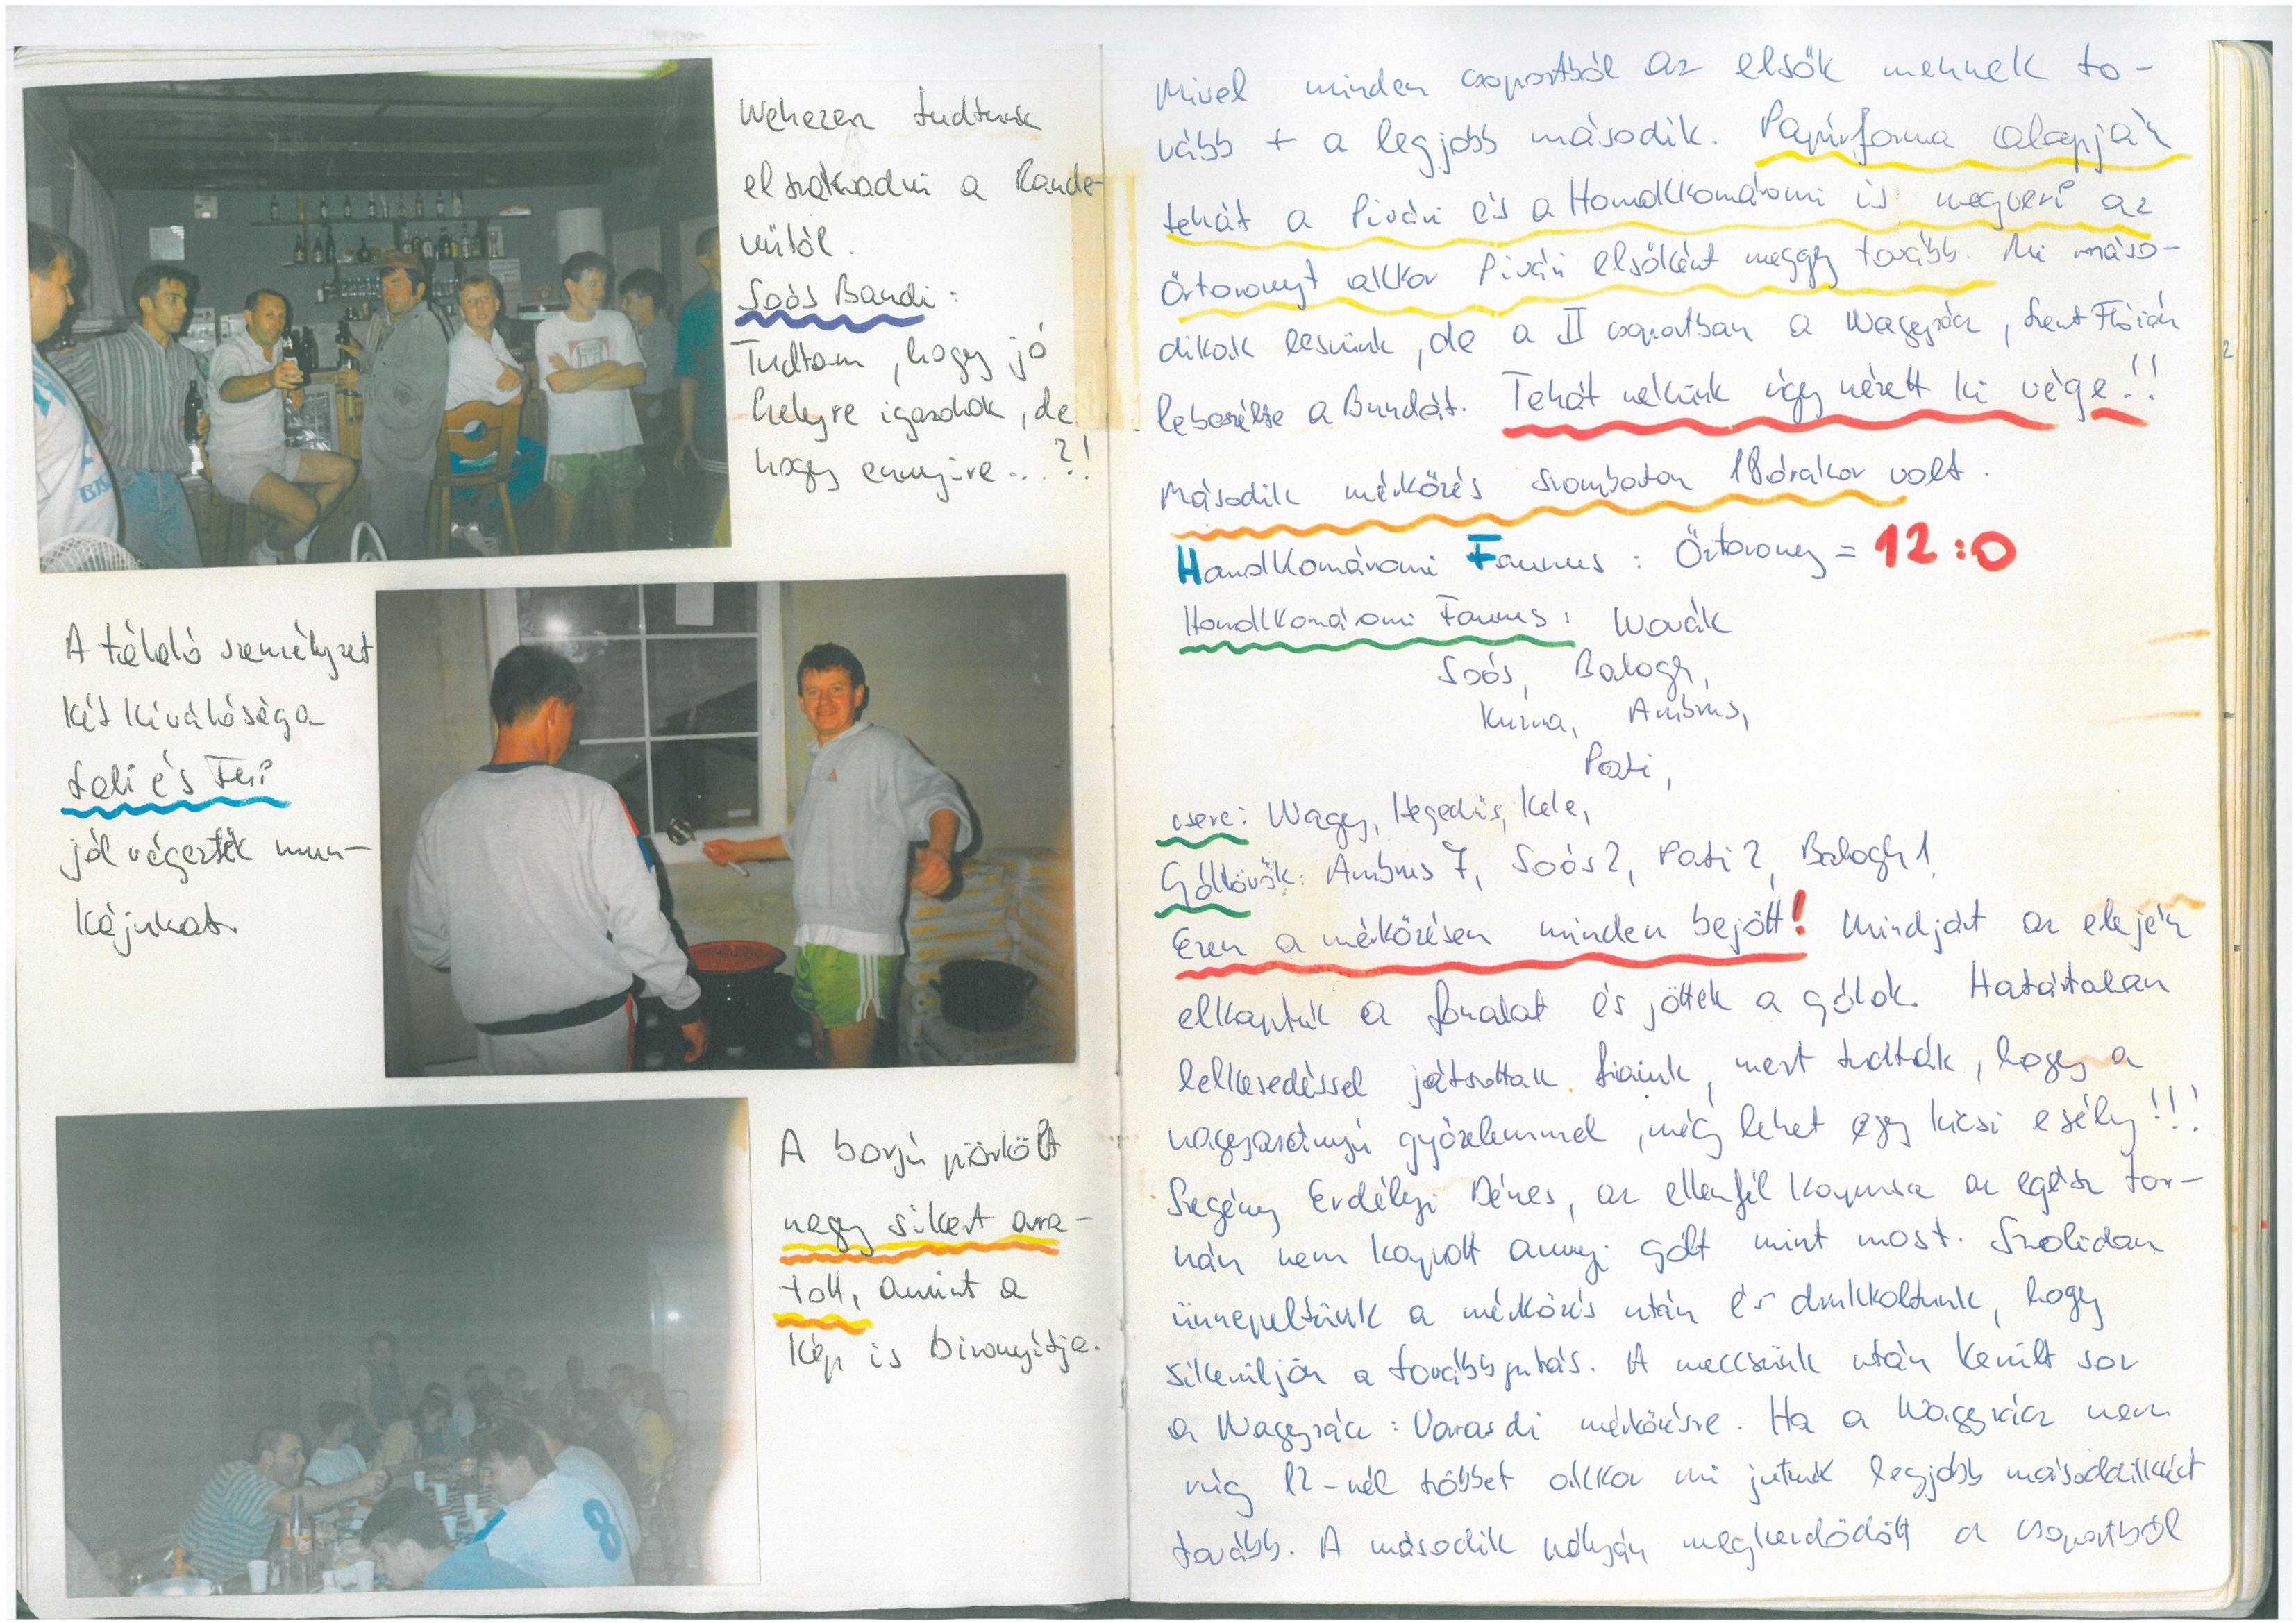 Nehezen tudtunk
elszakadni a Rande-
vútól.
Soós Bandi:
Tudtam, hogy jó
helyre igazolok, de
hogy ennyire...?!
A tálaló személyzet
két kiválósága
Feri
jól végezték mun-
kájukat.
A borjú pörkölt
nagy sikert ara-
tott, amint a
kép is bizonyítja.
8
Mivel minden csoportból az elsők mennek to-
vább + a legjobb második. Papírforma alapján
tehát a Pivári és a Homokkomáromi is megveri az
Őrtoronyt akkor Pivári elsőként meggy tovább. Mi máso-
dikak leszünk, de a II csoportban a Nagyrácz, Szent Flórián
lebeszélte a Bundát. Tehát nekünk úgy nézett ki vége!!
Második mérkőzés szombaton 18 órakor volt.
HomokKomáromi Faunus : Őrtorony = 12:0
HomokKomáromi Faunus: Novák
Soós, Balogh,
Kuzma, Ambrus,
Pati,
csere: Nagy, Hegedűs, Kele,
Góllövők: Ambrus 7, Soós 2, Pati 2, Balogh 1
Ezen a mérkőzésen minden bejött! Mindjárt az elején
elkaptuk a fonalat és jöttek a gólok. Határtalan
lelkesedéssel játszottak fiaink, mert tudták, hogy a
nagyarányú győzelemmel, még lehet egy kicsi esély!!!
Szegény Erdélyi Dénes, az ellenfél kapusa az egész tor-
nán nem kapott annyi gólt mint most. Szolidan
ünnepeltünk a mérkőzés után és drukkoltunk, hogy
sikerüljön a továbbjutás. A meccsünk után került sor
a Nagyrácz : Varasdi mérkőzésre. Ha a Nagyrácz nem
rúg 12-nél többet akkor mi jutunk legjobb másodikként
tovább. A második pályán megkezdődött a csoportból